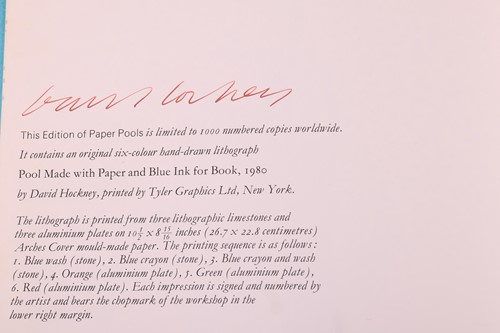 David Hockney
This Edition of Paper Pools is limited to 1000 numbered copies worldwide.
It contains an original six-colour hand-drawn lithograph
Pool Made with Paper and Blue Ink for Book, 1980
by David Hockney, printed by Tyler Graphics Ltd, New York.
The lithograph is printed from three lithographic limestones and
three aluminium plates on 10½ × 8 15/16 inches (26.7 × 22.8 centimetres)
Arches Cover mould-made paper. The printing sequence is as follows:
1. Blue wash (stone), 2. Blue crayon (stone), 3. Blue crayon and wash
(stone), 4. Orange (aluminium plate), 5. Green (aluminium plate),
6. Red (aluminium plate). Each impression is signed and numbered by
the artist and bears the chopmark of the workshop in the
lower right margin.